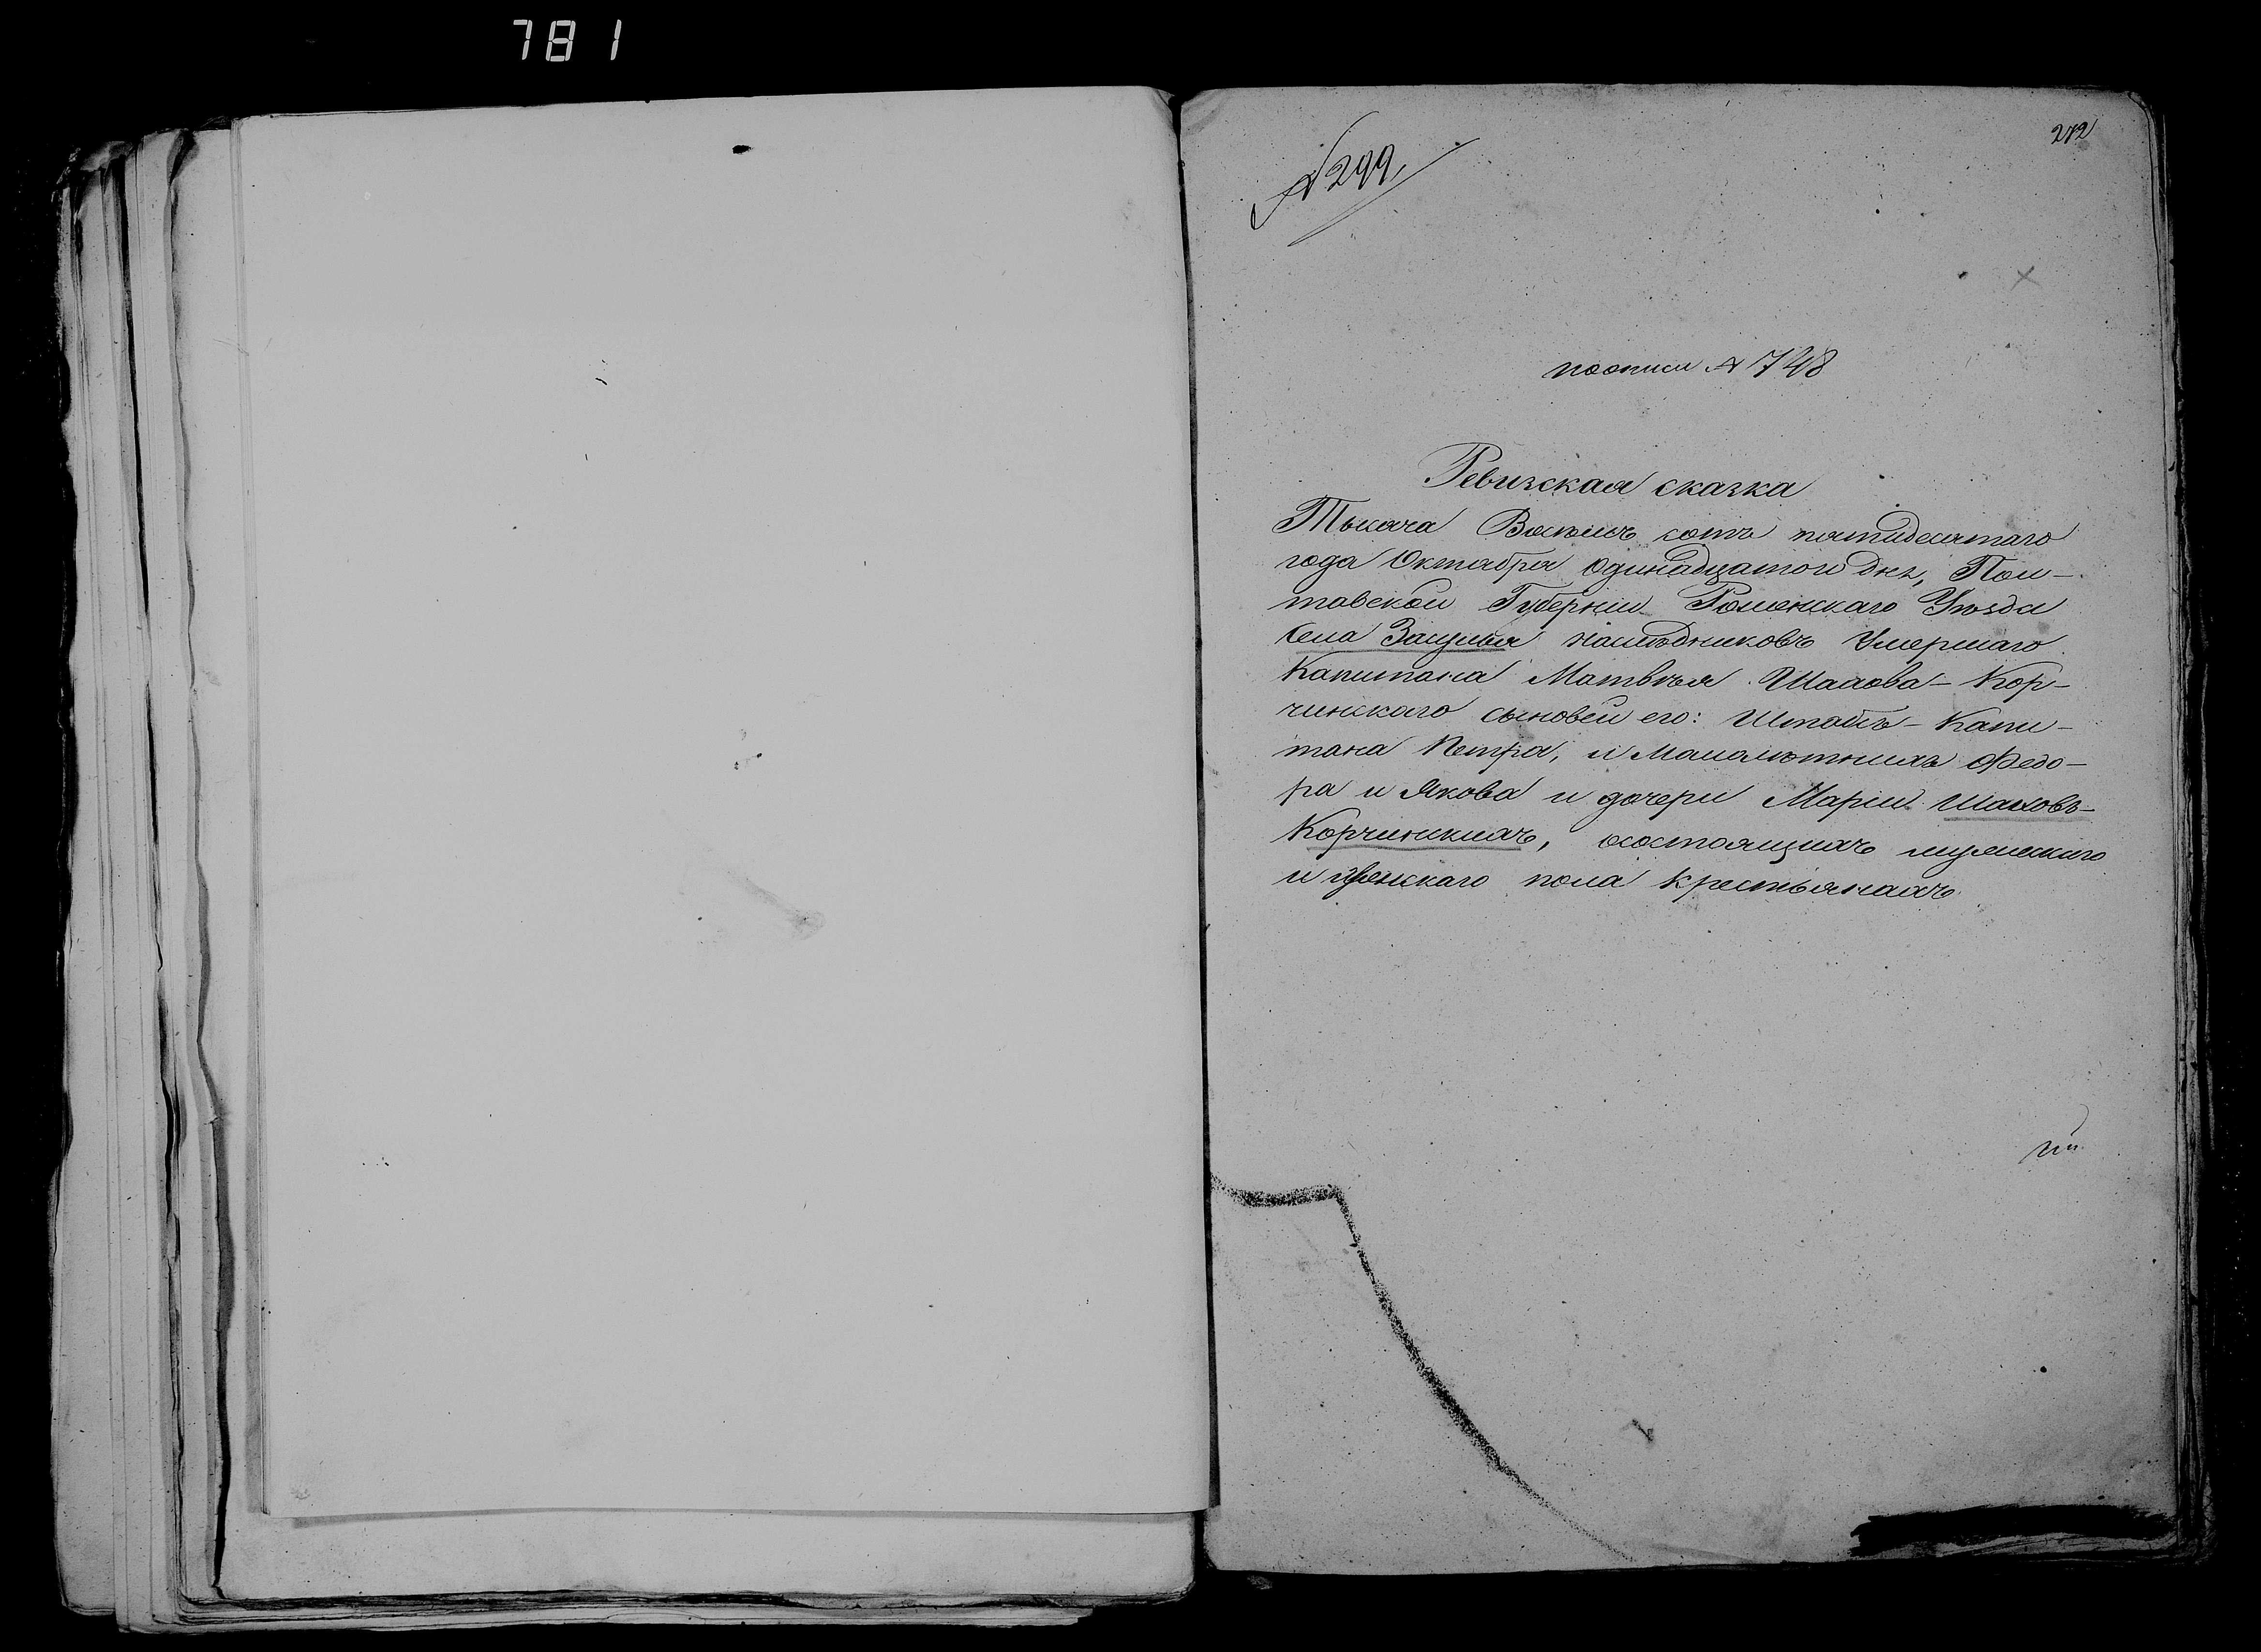 781
272
№ 299,
поописи № 748
Ревизская сказка
Тысяча Восемь сотъ пятидесятаго
года Октября одинадцатой дня, Пол-
тавской Губерніи Роменскаго Уѣзда
села Засулья наслѣдниковъ Умершаго
Капитана Матвѣя Шахова-Кор-
чинскаго сыновей его: Штабъ-Капи-
тана Петра, и Малолѣтнихъ Федо-
ра и Якова и дочери Маріи Шаховъ-
Корчинскихъ, осостоящихъ мужескаго
и женскаго пола крестьянахъ